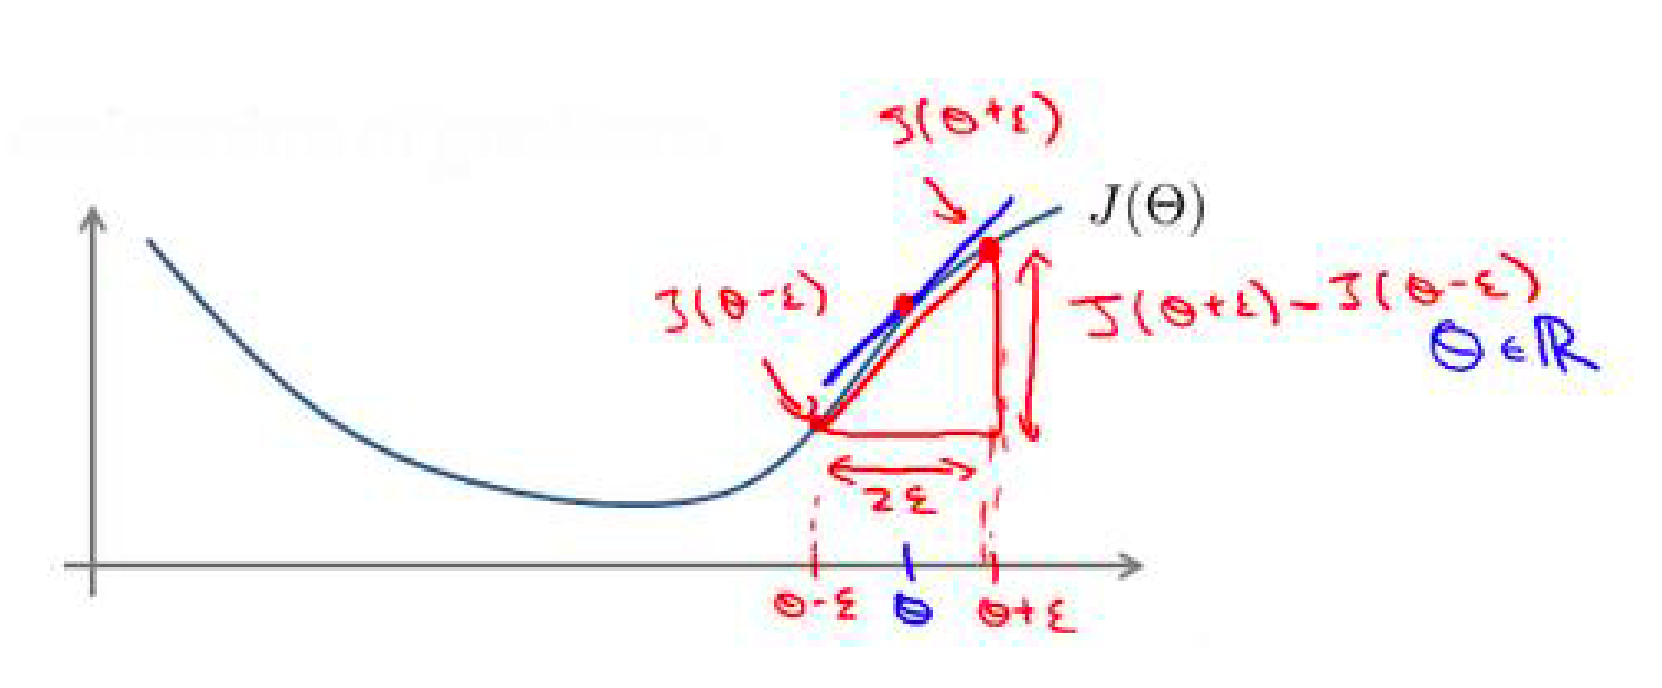 J(θ+ε)
J(Θ)
J(θ-ε)
J(θ+ε)-J(θ-ε)
Θ∈ℝ
2ε
θ-ε
θ
θ+ε